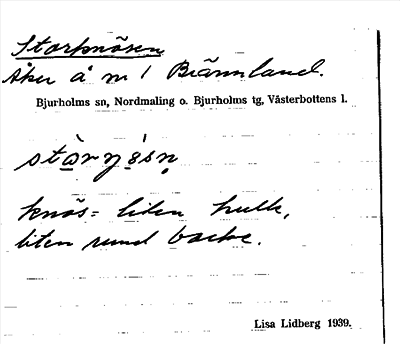 Storknösen
Åker å nr 1 Brännland.
Bjurholms sn, Nordmaling o. Bjurholms tg, Västerbottens l.
knös = liten kulle,
liten rund backe.
Lisa Lidberg 1939.